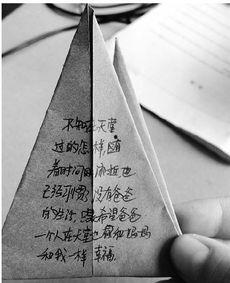 不知在天堂
过的怎样,随
着时间的流逝也
已经习惯了没有爸爸
的生活,希望爸爸
一个人在天堂也跟和妈妈
和我一样 幸福